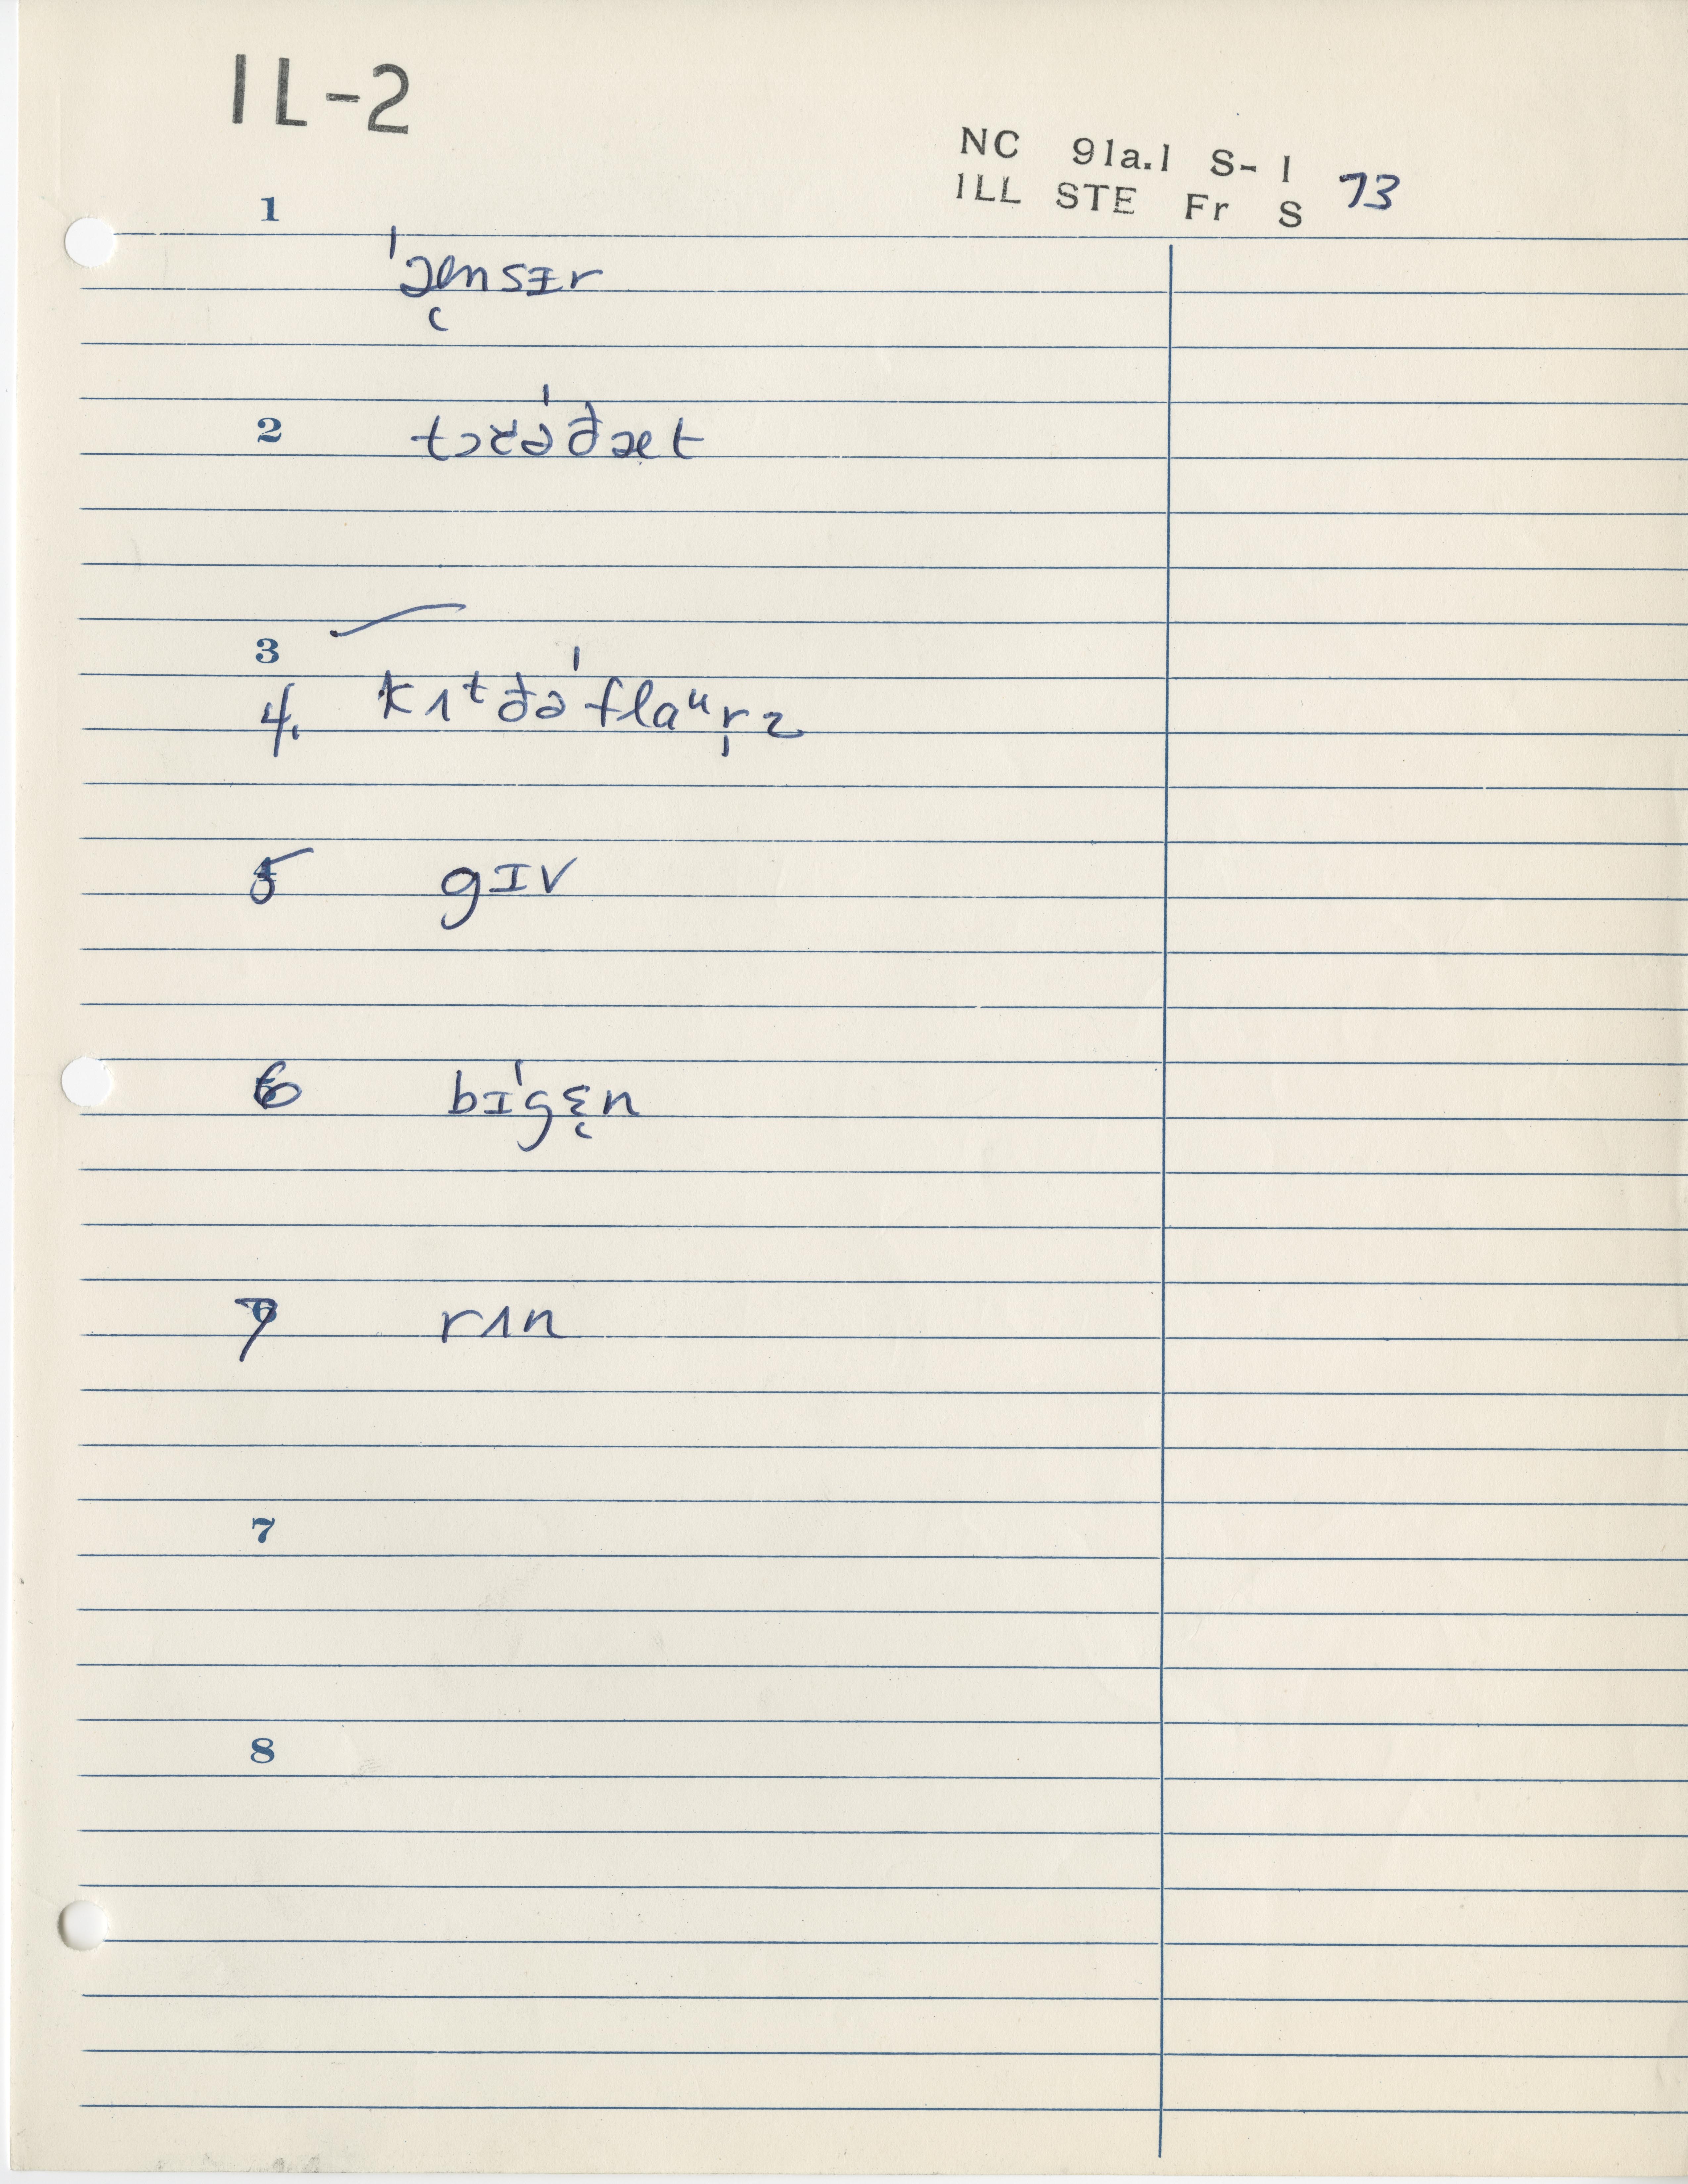 IL-2
NC 91a.1 S-1 73
ILL STE Fr S
1
ˈæ̜nsɪr
2
tɔɚəˈðæt
3
4. kʌᵗðəˈflaᵘr̩z
5 gɪv
6 bɪˈgɛ̜n
7 rʌn
7
8